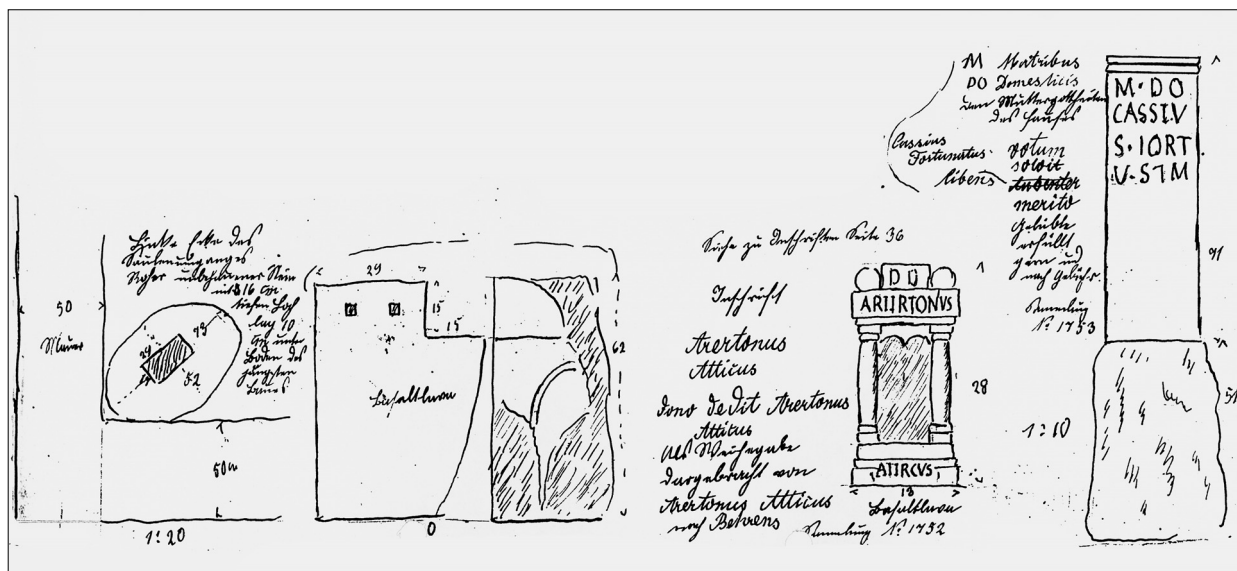 50
Mauer
Linke Ecke des
Säulenumganges
Roher unbehauener Stein
mit 16 cm
tiefem Loch
lag 10
cm unter
Boden des
jüngsten
Baues
29
73
17
52
50 m
1:20
29
15
15
Basaltlava
62
0
Siehe zu Inschriften Seite 36
Inschrift
Arertonus
Atticus
dono dedit Arertonus
Atticus
als Weihegabe
dargebracht von
Arertonus Atticus
nach Behrens
D D
ARIIRTONVS
ATIRCVS
28
18
Basaltlava
Sammlung No 1752
M Matribus
DO Domesticis
den Muttergottheiten
des Hauses
Cassius
Fortunatus
votum
solvit
libens
merito
Gelübde
erfüllt
gern und
nach Gebühr
Sammlung
No 1753
1:10
M·DO
CASSIV
S·IORT
V·STM
91
51